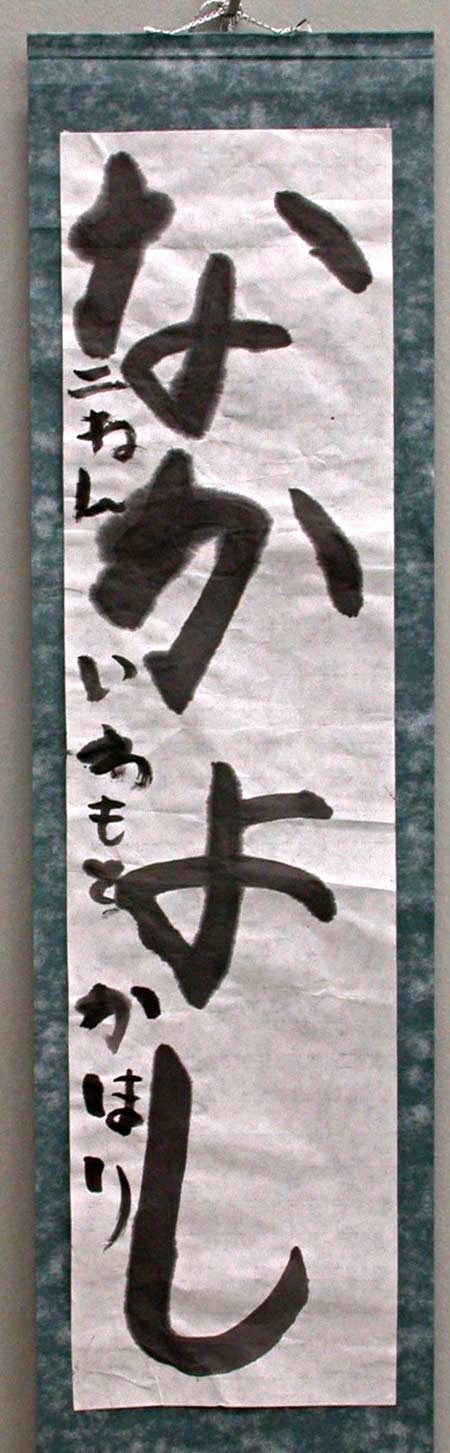 なかよし
二ねん いちもと かほり